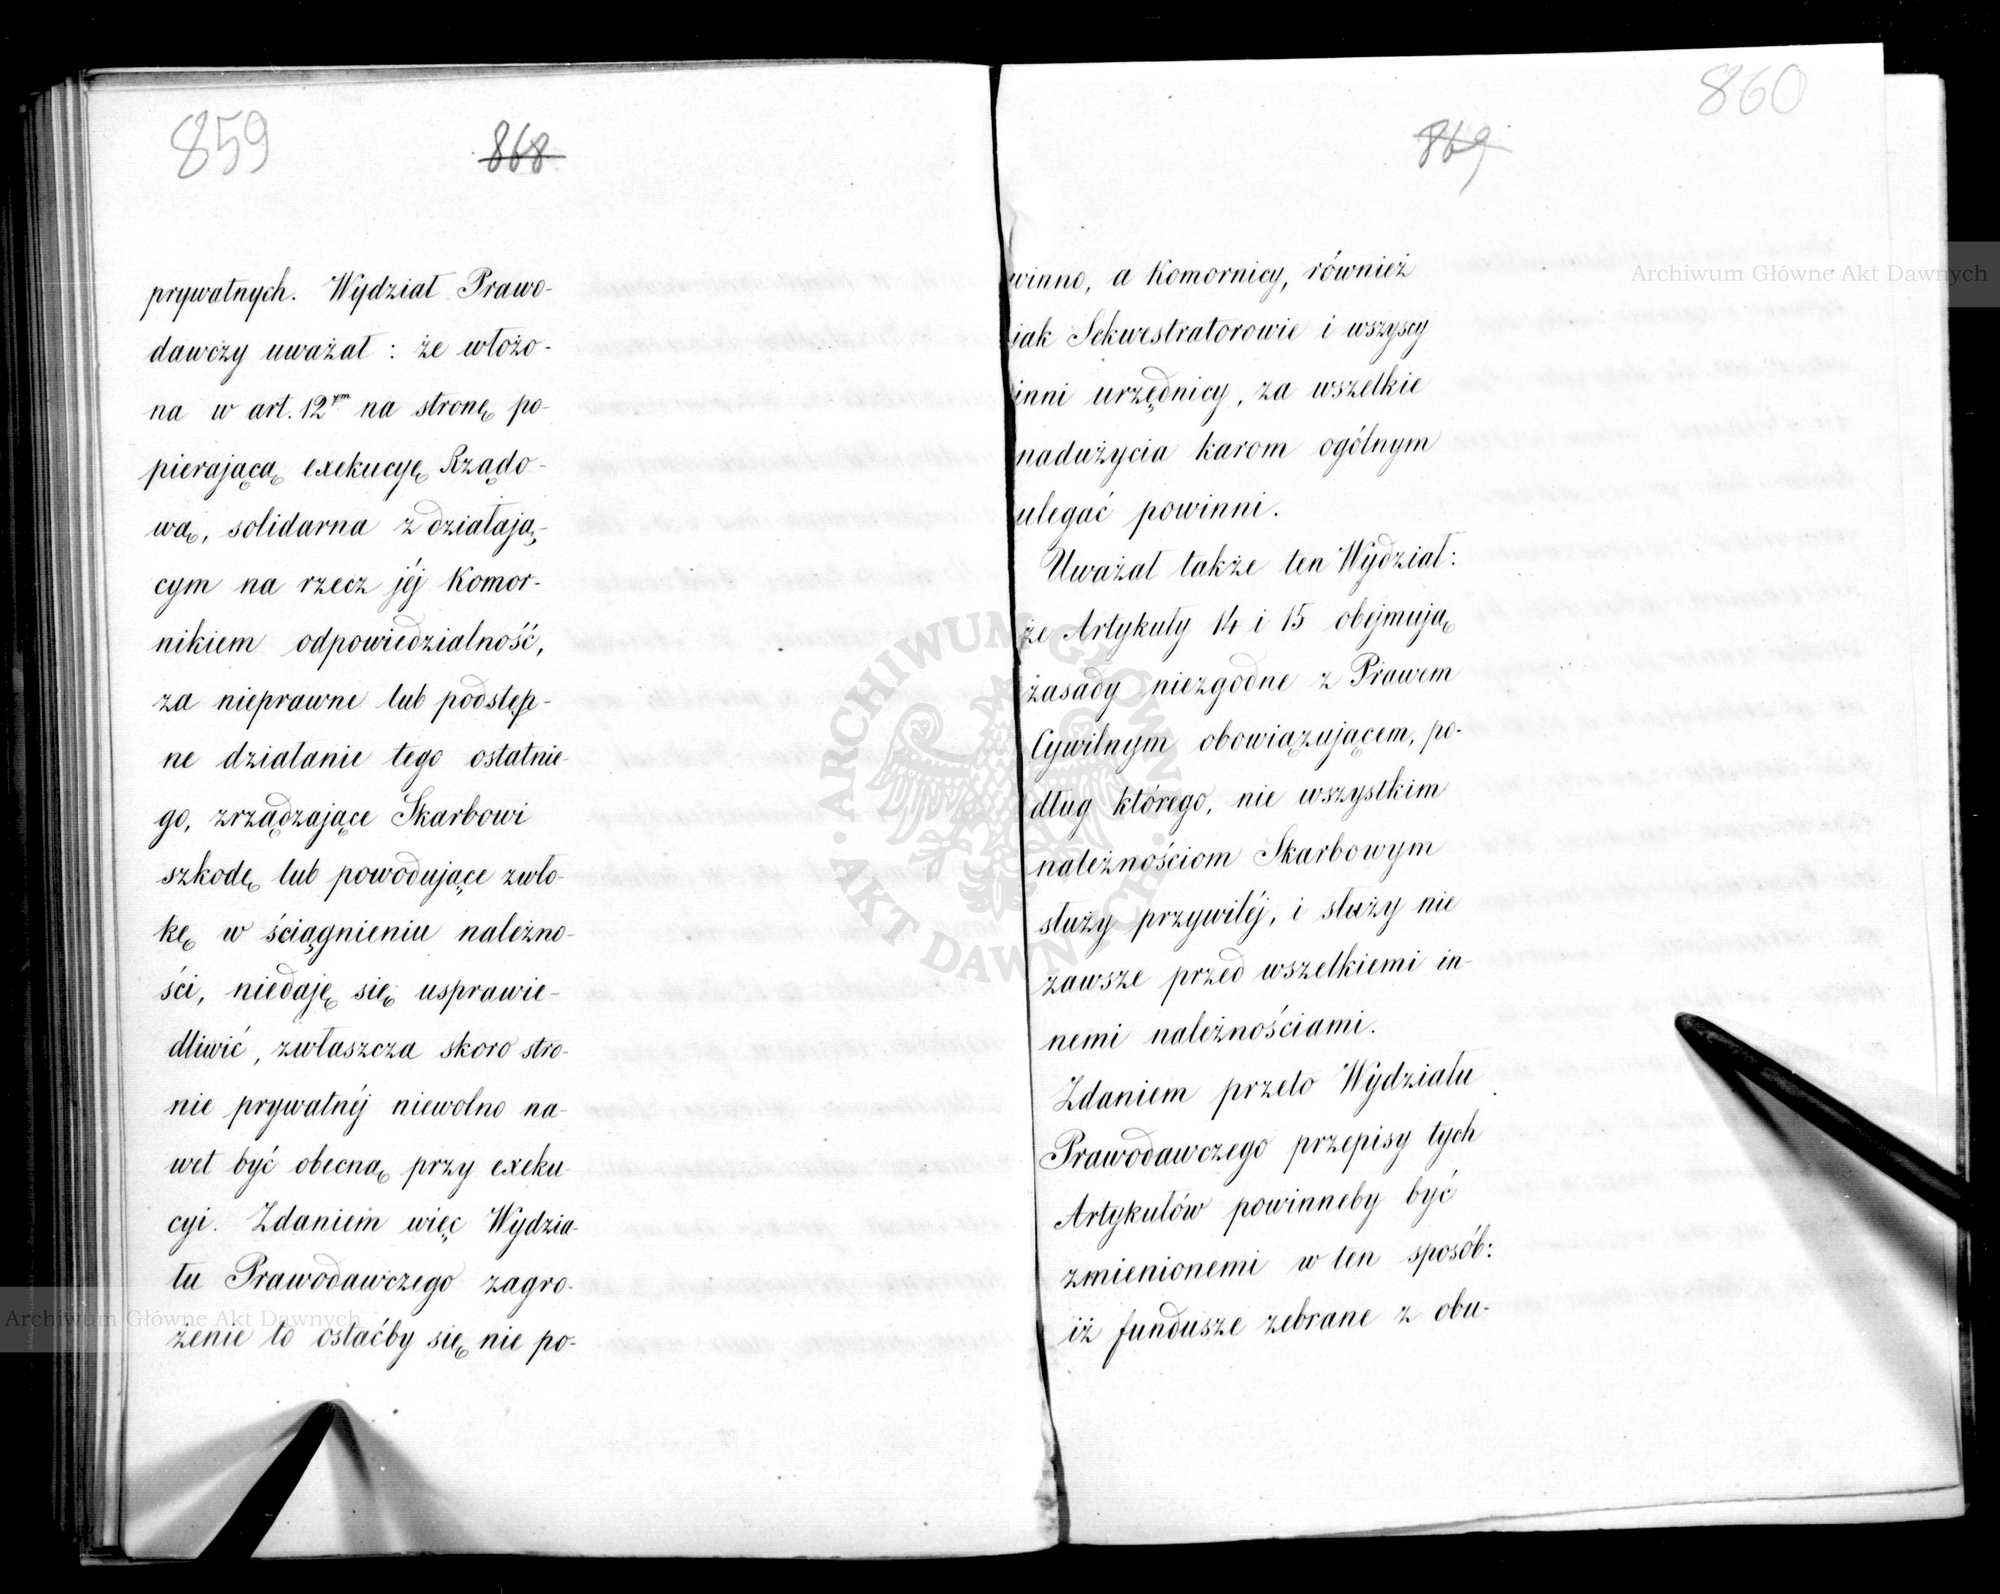 859
868
prywatnych. Wydział Prawo-
dawczy uważał: że włożo-
na w art. 12ym na stronę po-
pierającą exekucyę Rządo-
wą, solidarna z działają-
cym na rzecz jéj Komor-
nikiem odpowiedzialność,
za nieprawne lub podstęp-
ne działanie tego ostatnie-
go, zrządzające Skarbowi
szkodę lub powodujące zwło-
kę w ściągnieniu należno-
ści, niedaję się usprawie-
dliwić, zwłaszcza skoro stro-
nie prywatnéj niewolno na-
wet być obecną przy exeku-
cyi. Zdaniem więc Wydzia-
łu Prawodawczego zagro-
żenie to ostaćby się nie po-
860
869
winno, a Komornicy, również
jak Sekwestratorowie i wszyscy
inni urzędnicy, za wszelkie
nadużycia karom ogólnym
ulegać powinni.
Uważał także ten Wydział:
że Artykuły 14 i 15 obejmują
zasady niezgodne z Prawem
Cywilnym obowiązującem, po-
dług którego, nie wszystkim
należnościom Skarbowym
służy przywiléj, i służy nie
zawsze przed wszelkiemi in-
nemi należnościami.
Zdaniem przeto Wydziału
Prawodawczego przepisy tych
Artykułów powinneby być
zmienionemi w ten sposób:
iż fundusze zebrane z obu-
Archiwum Główne Akt Dawnych
Archiwum Główne Akt Dawnych
ARCHIWUM GŁÓWNE · AKT DAWNYCH ·